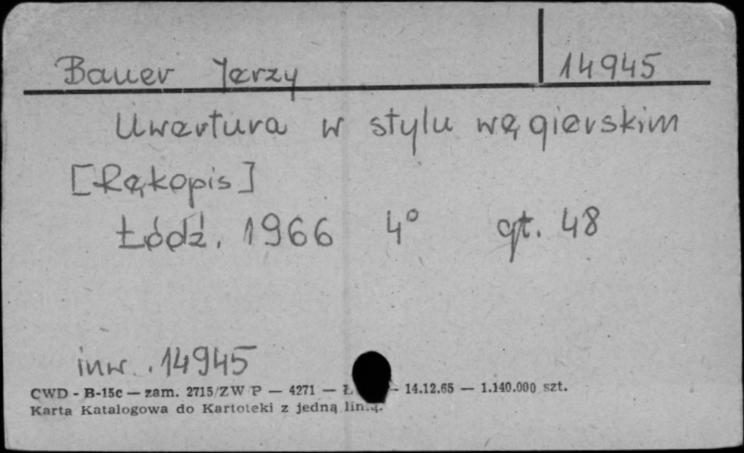 Bauer Jerzy 14945
Uwertura w stylu węgierskim
[Rękopis]
Łódź. 1966 4° gt. 48
inw. 14945
CWD - B-15c — zam. 2715/ZW P — 4271 — — 14.12.65 — 1.140.000 szt.
Karta Katalogowa do Kartoteki z jedną linią.